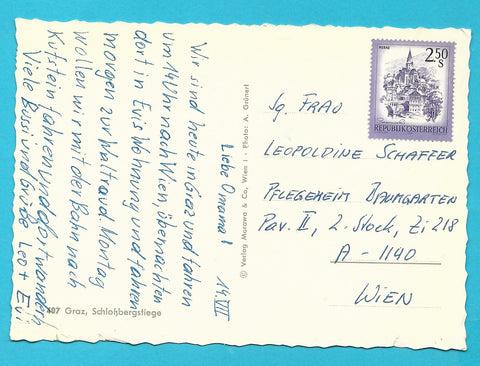 14.VII
Liebe Omama!
Wir sind heute in Graz und fahren
um 14 Uhr nach Wien, übernachten
dort in Evis Wohnung und fahren
morgen zur Waltraud. Montag
wollen wir mit der Bahn nach
Kufstein fahren und dort wandern
Viele Bussi und Grüße Leo + Evi
407 Graz, Schloßbergstiege
© Verlag Morawa & Co, Wien I - Photo: A. Grünert
MURAU
2.50
S
REPUBLIK ÖSTERREICH
Sg. FRAU
LEOPOLDINE SCHAFFER
PFLEGEHEIM BAUMGARTEN
Pav. II, 2. Stock, Zi 218
A - 1140
WIEN